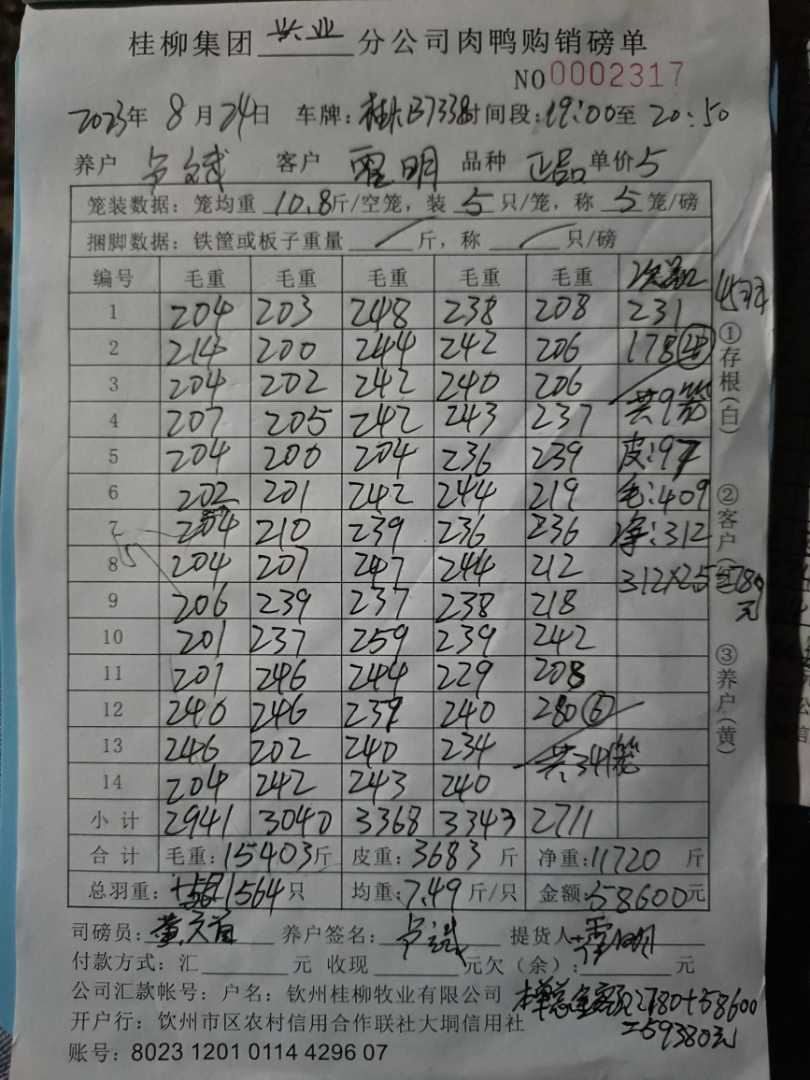 桂柳集团 兴业 分公司肉鸭购销磅单
NO 0002317
2023年 8月24日 车牌: 时间段:19:00至 20:50
养户 客户 明 品种 正品 单价5
笼装数据: 笼均重 10.8斤/空笼, 装 5 只/笼, 称 5 笼/磅
捆脚数据: 铁筐或板子重量 / 斤, 称 / 只/磅
编号 毛重 毛重 毛重 毛重 毛重
1 204 203 248 238 208 231
2 214 200 244 242 206 178
3 204 202 242 240 206
4 207 205 242 243 237 共9笼
5 204 200 204 236 239 皮:97
6 202 201 242 244 219 毛:409
7 204 210 239 236 236 净:312
8 204 207 247 244 212 312×2.5=780元
9 206 239 237 238 218
10 201 237 259 239 242
11 201 246 244 229 208
12 240 246 239 240 280⑥
13 246 202 240 234
14 204 242 243 240
小计 2941 3040 3368 3343 2711
合计 毛重:15403斤 皮重:3683斤 净重:11720斤
总羽重: 1564只 均重:7.49斤/只 金额:58600元
司磅员: 养户签名: 提货人:
付款方式: 汇 元 收现 元欠(余): 元
公司汇款帐号: 户名: 钦州桂柳牧业有限公司
开户行: 钦州市区农村信用合作联社大垌信用社
账号: 8023 1201 0114 4296 07
总金额 780+58600
=59380元
①存根(白)
②客户
③养户(黄)